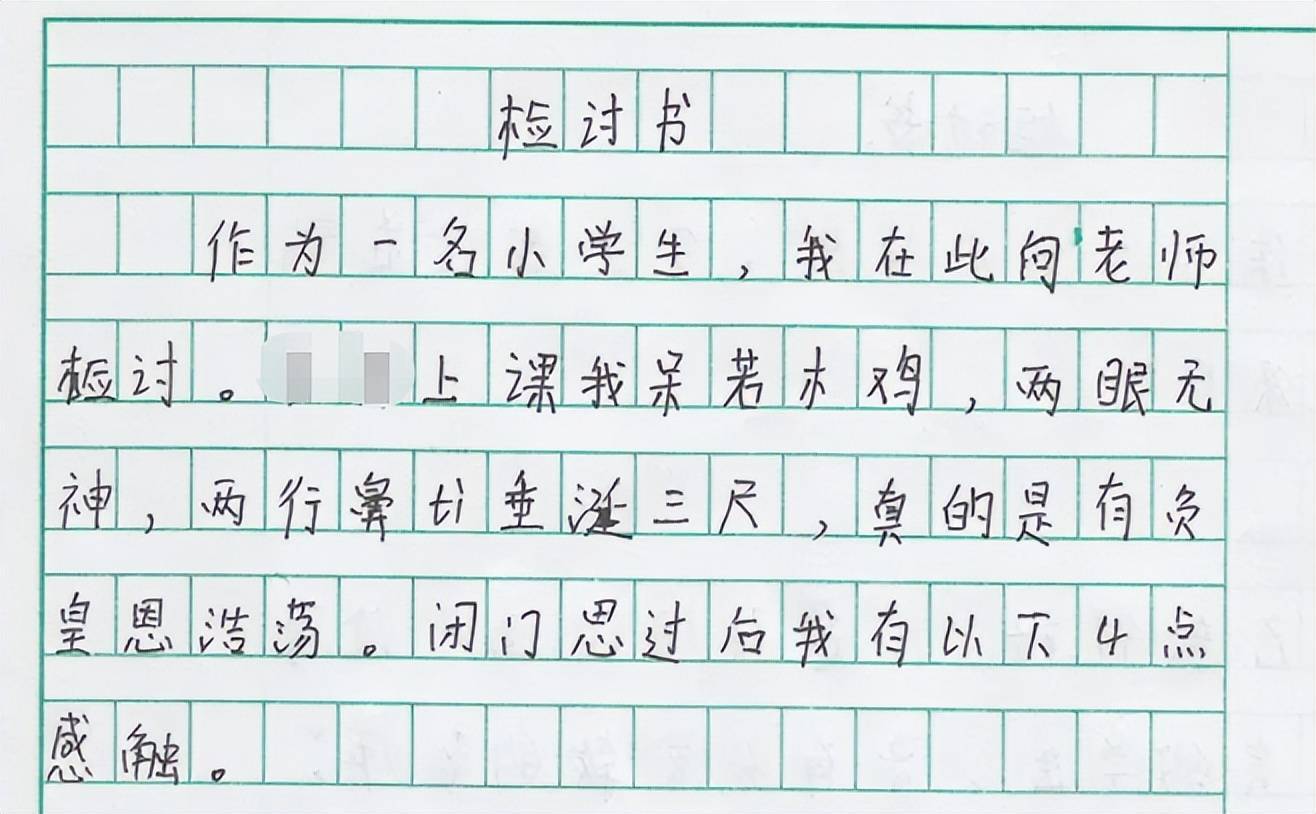 检讨书
作为一名小学生，我在此向老师
检讨。上课我呆若木鸡，两眼无
神，两行鼻ti垂涎三尺，真的是有负
皇恩浩荡。闭门思过后我有以下4点
感触。